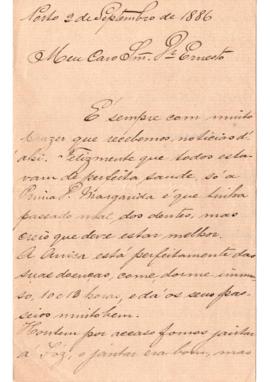 Porto 2 de Septembro de 1886
Meu Caro Snr. Dr. Ernesto
É sempre com muito
prazer que recebemos noticias d'
ahi. Felizmente que todos esta-
vam de perfeita saude, só a
Prima P. Margarida é que tinha
passado mal dos dentes, mas
creio que deve estar melhor.
A Anica está perfeitamente das
suas doenças, come, dorme immen-
so, 10 e 13 horas, e dá os seus pas-
seios muito bem.
Hontem por accaso fomos jantar
á Foz, o jantar era bom, mas